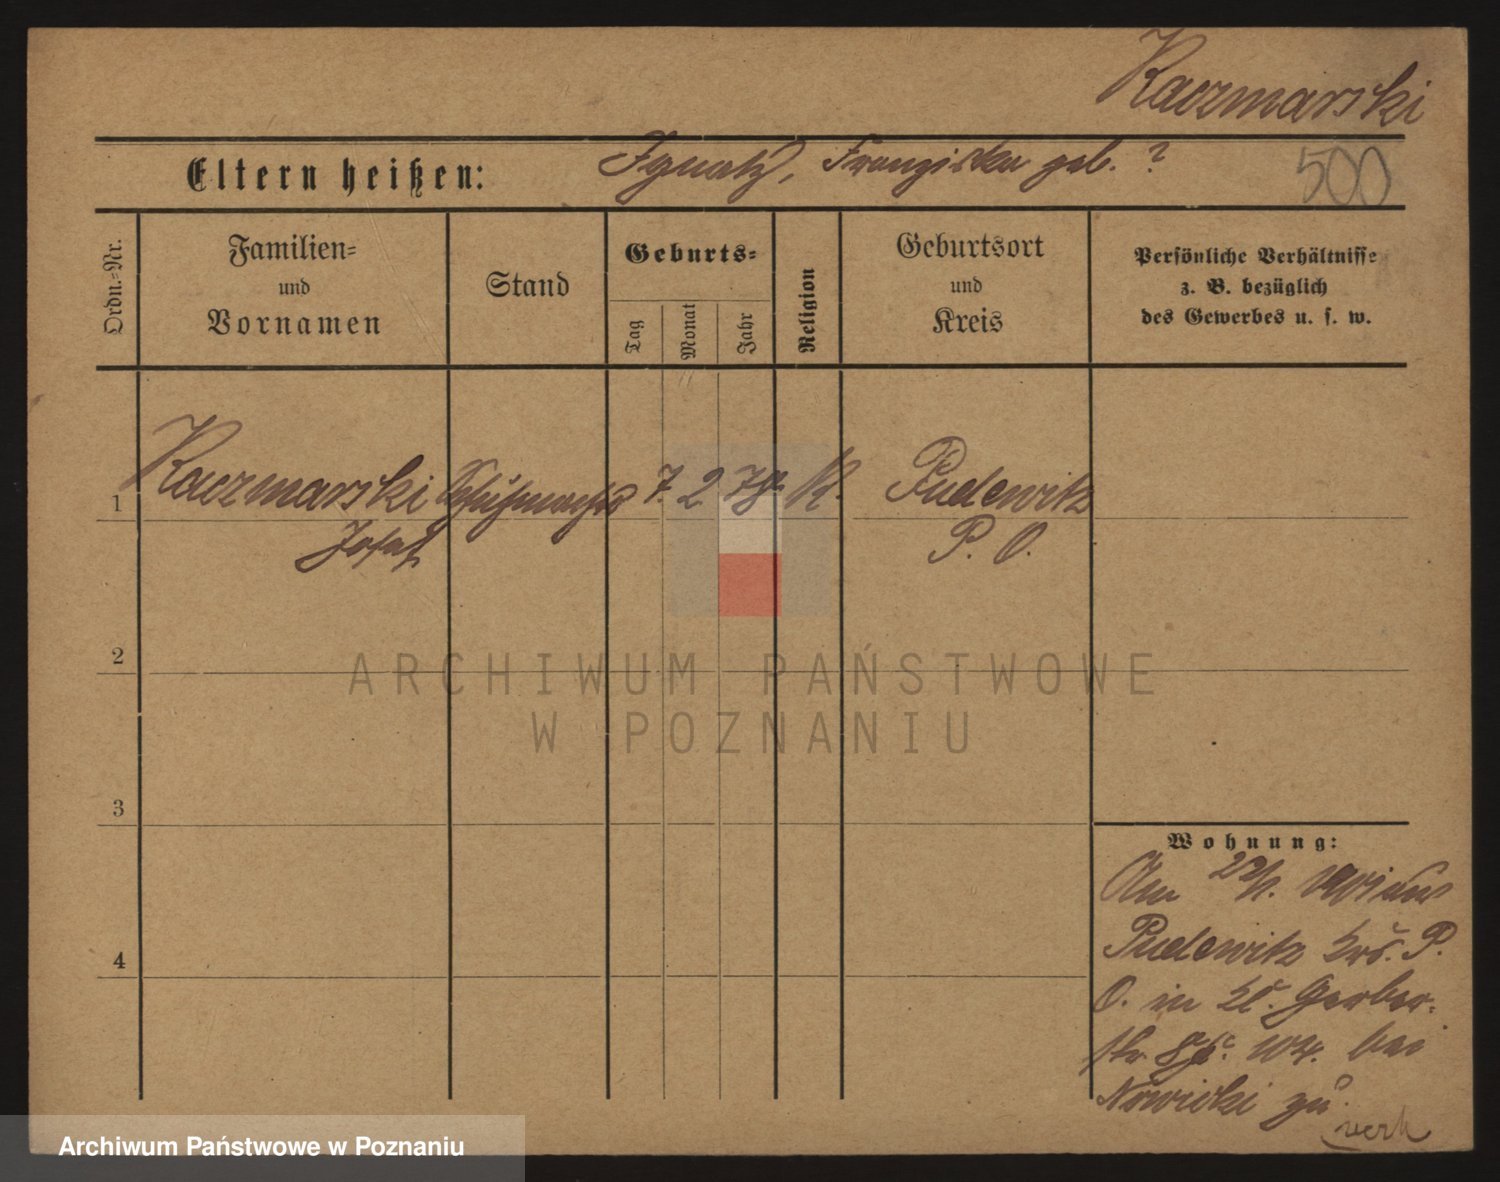 Kaczmarski
Eltern heißen: Ignatz, Franziska geb. ?
500
Ordn.=Nr.
Familien=
und
Vornamen
Stand
Geburts=
Tag
Monat
Jahr
Religion
Geburtsort
und
Kreis
Persönliche Verhältnisse
z. B. bezüglich
des Gewerbes u. s. w.
1 Kaczmarski Schuhmacher 7. 2 78 K. Pudewitz
Josef P. O.
2
ARCHIWUM PAŃSTWOWE
W POZNANIU
3
Wohnung:
Am
Pudewitz Krs. P.
4
O. in Kl. Gerber-
str. bei
Nowicki zu.
Archiwum Państwowe w Poznaniu